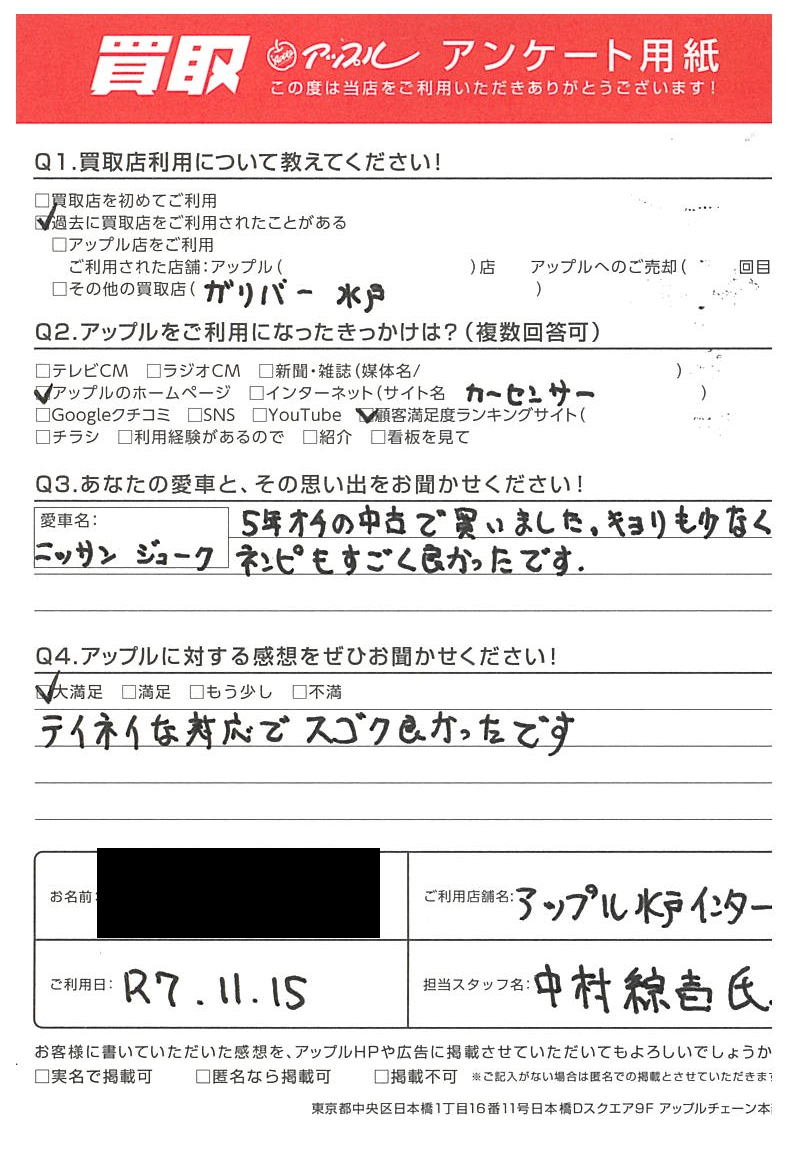 買取 アップル アンケート用紙
この度は当店をご利用いただきありがとうございます!
Q1.買取店利用について教えてください!
□買取店を初めてご利用
☑過去に買取店をご利用されたことがある
□アップル店をご利用
ご利用された店舗:アップル( )店 アップルへのご売却( 回目
□その他の買取店(ガリバー 水戸 )
Q2.アップルをご利用になったきっかけは?(複数回答可)
□テレビCM □ラジオCM □新聞・雑誌(媒体名/ )
☑アップルのホームページ □インターネット(サイト名 カーセンサー )
□Googleクチコミ □SNS □YouTube ☑顧客満足度ランキングサイト(
□チラシ □利用経験があるので □紹介 □看板を見て
Q3.あなたの愛車と、その思い出をお聞かせください!
愛車名:
ニッサン ジューク
5年オチの中古で買いました。キョリも少なく
ネンピもすごく良かったです.
Q4.アップルに対する感想をぜひお聞かせください!
☑大満足 □満足 □もう少し □不満
テイネイな対応でスゴク良かったです
お名前:
ご利用店舗名:アップル水戸インター
ご利用日:R7.11.15
担当スタッフ名:中村綜壱氏.
お客様に書いていただいた感想を、アップルHPや広告に掲載させていただいてもよろしいでしょうか
□実名で掲載可 □匿名なら掲載可 □掲載不可 ※ご記入がない場合は匿名での掲載とさせていただきます
東京都中央区日本橋1丁目16番11号日本橋Dスクエア9F アップルチェーン本